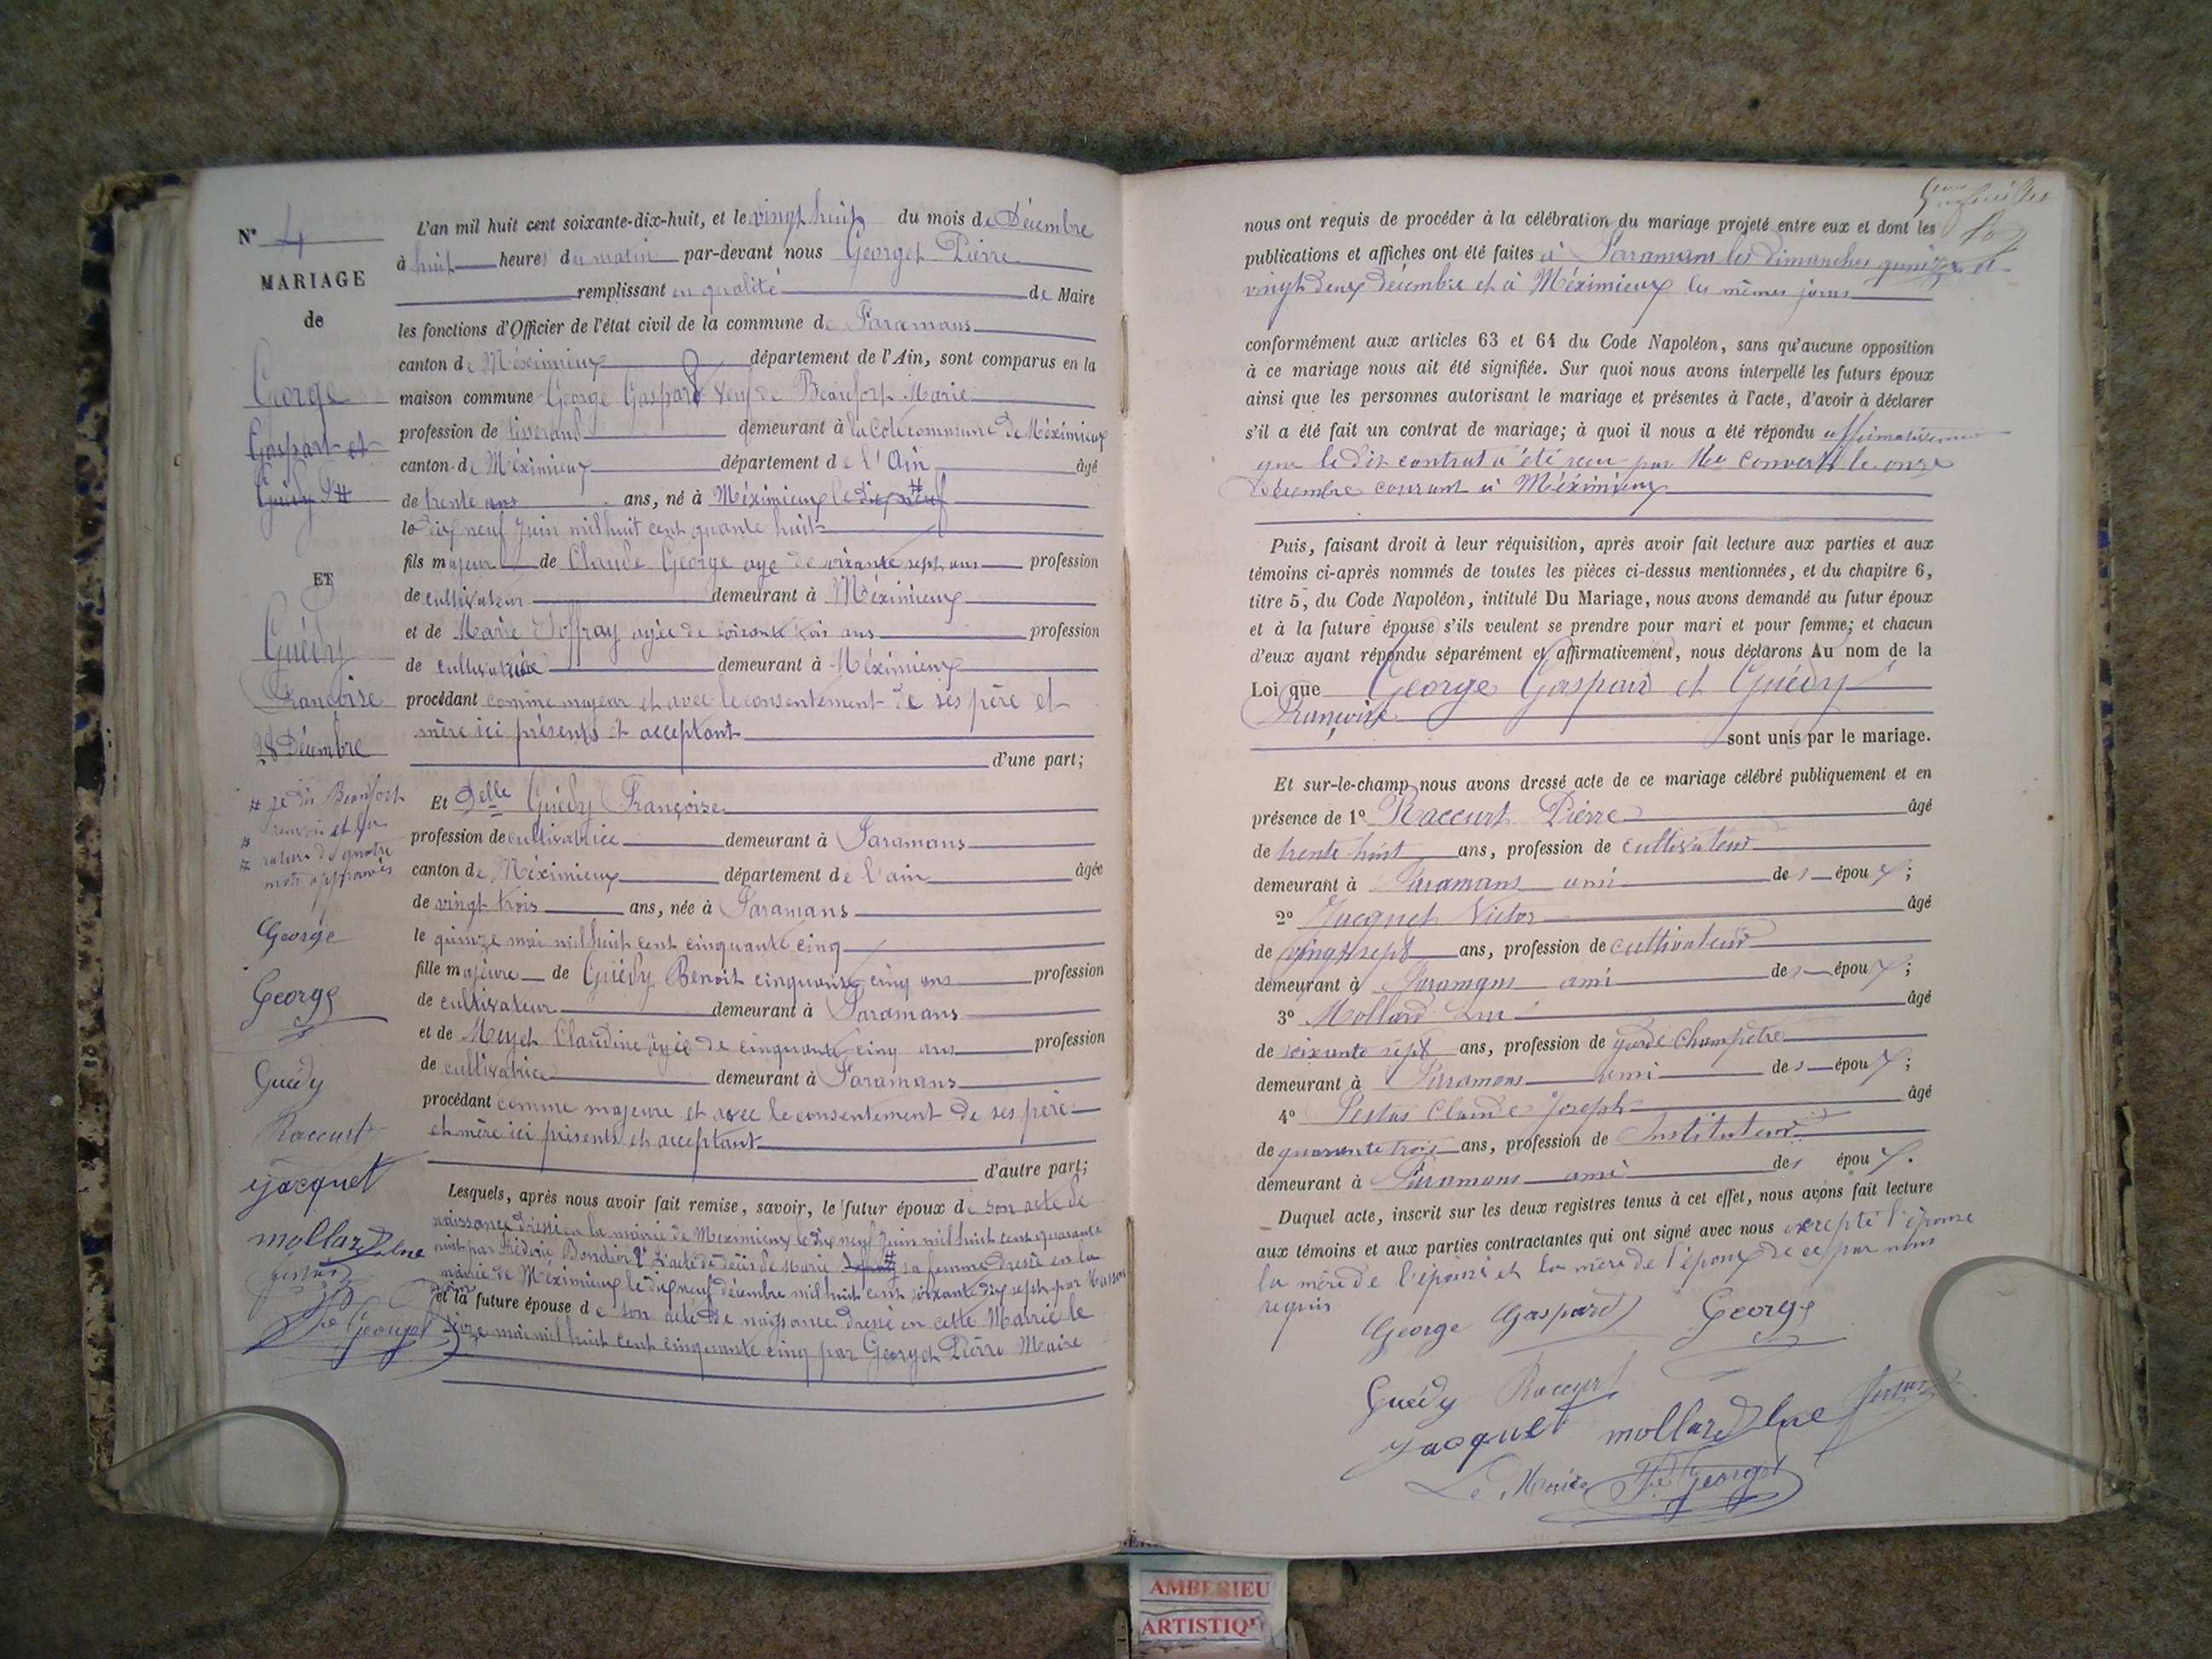 N° 4
MARIAGE
de
George
Gaspard et
Guédy F
ET
Guédy
Françoise
28 Décembre
# je dis Beaufort
renvoi et la
rature de quatre
mots approuvés
George
George
Guédy
Raccurt
Jacquet
mollard luc
Pre Georget
L'an mil huit cent soixante-dix-huit, et le vingt huit du mois de Décembre
à huit heures du matin par-devant nous Georget Pierre
remplissant en qualité de Maire
les fonctions d'Officier de l'état civil de la commune de Faramans
canton de Méximieux département de l'Ain, sont comparus en la
maison commune George Gaspard Veuf de Beaufort Marie
profession de tisserand demeurant à la Cote commune de Méximieux
canton de Méximieux département de l'Ain âgé
de trente ans ans, né à Méximieux le dix neuf
le dix neuf Juin mil huit cent quarante huit
fils majeur de Claude George age de soixante sept ans profession
de cultivateur demeurant à Méximieux
et de Marie Joffray agée de soixante trois ans profession
de cultivatrice demeurant à Méximieux
procédant comme majeur et avec le consentement de ses père et
mère ici présents et acceptant
d'une part;
Et Delle Guédy Françoise
profession de cultivatrice demeurant à Faramans
canton de Méximieux département de l'ain âgée
de vingt trois ans, née à Faramans
le quinze mai mil huit cent cinquante cinq
fille majeure de Guédy Benoit cinquante cinq ans profession
de cultivateur demeurant à Faramans
et de Meyet Claudine agée de cinquante cinq ans profession
de cultivatrice demeurant à Faramans
procédant comme majeure et avec le consentement de ses père
et mère ici présents et acceptant
d'autre part;
Lesquels, après nous avoir fait remise, savoir, le futur époux de son acte de
naissance dressé en la mairie de Meximieux le dix neuf Juin mil huit cent quarante
huit par Bondier 2° L'acte de décès de Marie sa femme dressé en la
mairie de Méximieux le dix neuf décembre mil huit cent soixante dix sept par Masson
et la future épouse de son acte de naissance dressé en cette Mairie le
seize mai mil huit cent cinquante cinq par Georget Pierre Maire
nous ont requis de procéder à la célébration du mariage projeté entre eux et dont les
publications et affiches ont été faites à Faramans les dimanches quinze et
vingt deux décembre et à Méximieux les mêmes jours
conformément aux articles 63 et 64 du Code Napoléon, sans qu'aucune opposition
à ce mariage nous ait été signifiée. Sur quoi nous avons interpellé les futurs époux
ainsi que les personnes autorisant le mariage et présentes à l'acte, d'avoir à déclarer
s'il a été fait un contrat de mariage; à quoi il nous a été répondu affirmativement
que le dit contrat a été recu par Me Convert le onze
décembre courant à Méximieux
Puis, faisant droit à leur réquisition, après avoir fait lecture aux parties et aux
témoins ci-après nommés de toutes les pièces ci-dessus mentionnées, et du chapitre 6,
titre 5, du Code Napoléon, intitulé Du Mariage, nous avons demandé au futur époux
et à la future épouse s'ils veulent se prendre pour mari et pour femme; et chacun
d'eux ayant répondu séparément et affirmativement, nous déclarons Au nom de la
Loi que George Gaspard et Guédy
Françoise
sont unis par le mariage.
Et sur-le-champ nous avons dressé acte de ce mariage célébré publiquement et en
présence de 1° Raccurt Pierre âgé
de trente huit ans, profession de cultivateur
demeurant à Faramans ami des époux;
2° Jacquet Victor âgé
de vingt sept ans, profession de cultivateur
demeurant à Faramans ami des époux;
3° Mollard Luc âgé
de soixante sept ans, profession de garde champêtre
demeurant à Faramans ami des époux;
4° Claude Joseph âgé
de quarante trois ans, profession de Instituteur
demeurant à Faramans ami des époux.
Duquel acte, inscrit sur les deux registres tenus à cet effet, nous avons fait lecture
aux témoins et aux parties contractantes qui ont signé avec nous excepté l'épouse
la mère de l'épouse et la mère de l'époux de ce par nous
requis
George Gaspard George
Guédy Raccurt
Jacquet mollard luc
Le Maire Pre Georget
AMBERIEU
ARTISTIQ